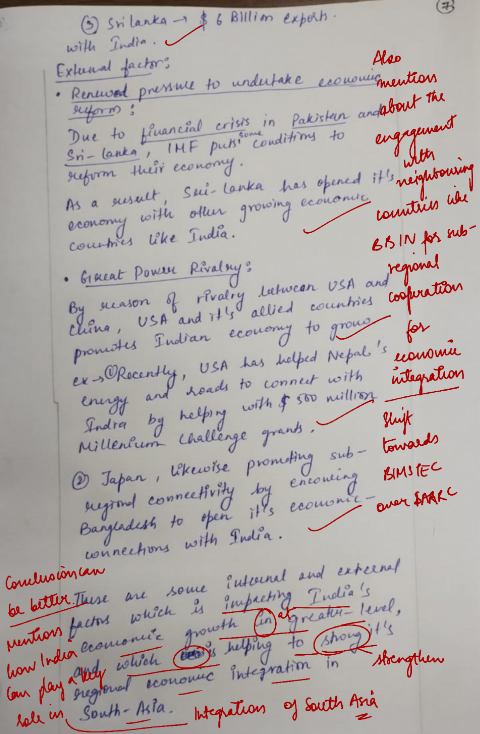 7
③ Sri lanka → $ 6 Billion export
with India.
External factor:
• Renewed pressure to undertake economic
reform:
Due to financial crisis in Pakistan and
Sri-lanka, IMF puts some conditions to
reform their economy.
As a result, Sri-lanka has opened it's
economy with other growing economic
countries like India.
• Great Power Rivalry:
By reason of rivalry between USA and
China, USA and it's allied countries
promotes Indian economy to grow
ex → ① Recently, USA has helped Nepal's
energy and roads to connect with
India by helping with $ 500 million
Millenium Challenge grants.
② Japan, likewise promoting sub-
regional connectivity by
Bangladesh to open it's economic
connections with India.
These are some internal and external
factors which is impacting India's
economic growth in greater-level,
and which is helping to strong it's
regional economic integration in
South-Asia.
Also
mention
about the
engagement
with
neighbouring
countries like
BBIN for sub-
regional
cooperation
for
economic
integration
Shift
towards
BIMSTEC
over SAARC
Conclusion can
be better.
mention
how India
can play a key
role in
Integration of South Asia
at
strengthen